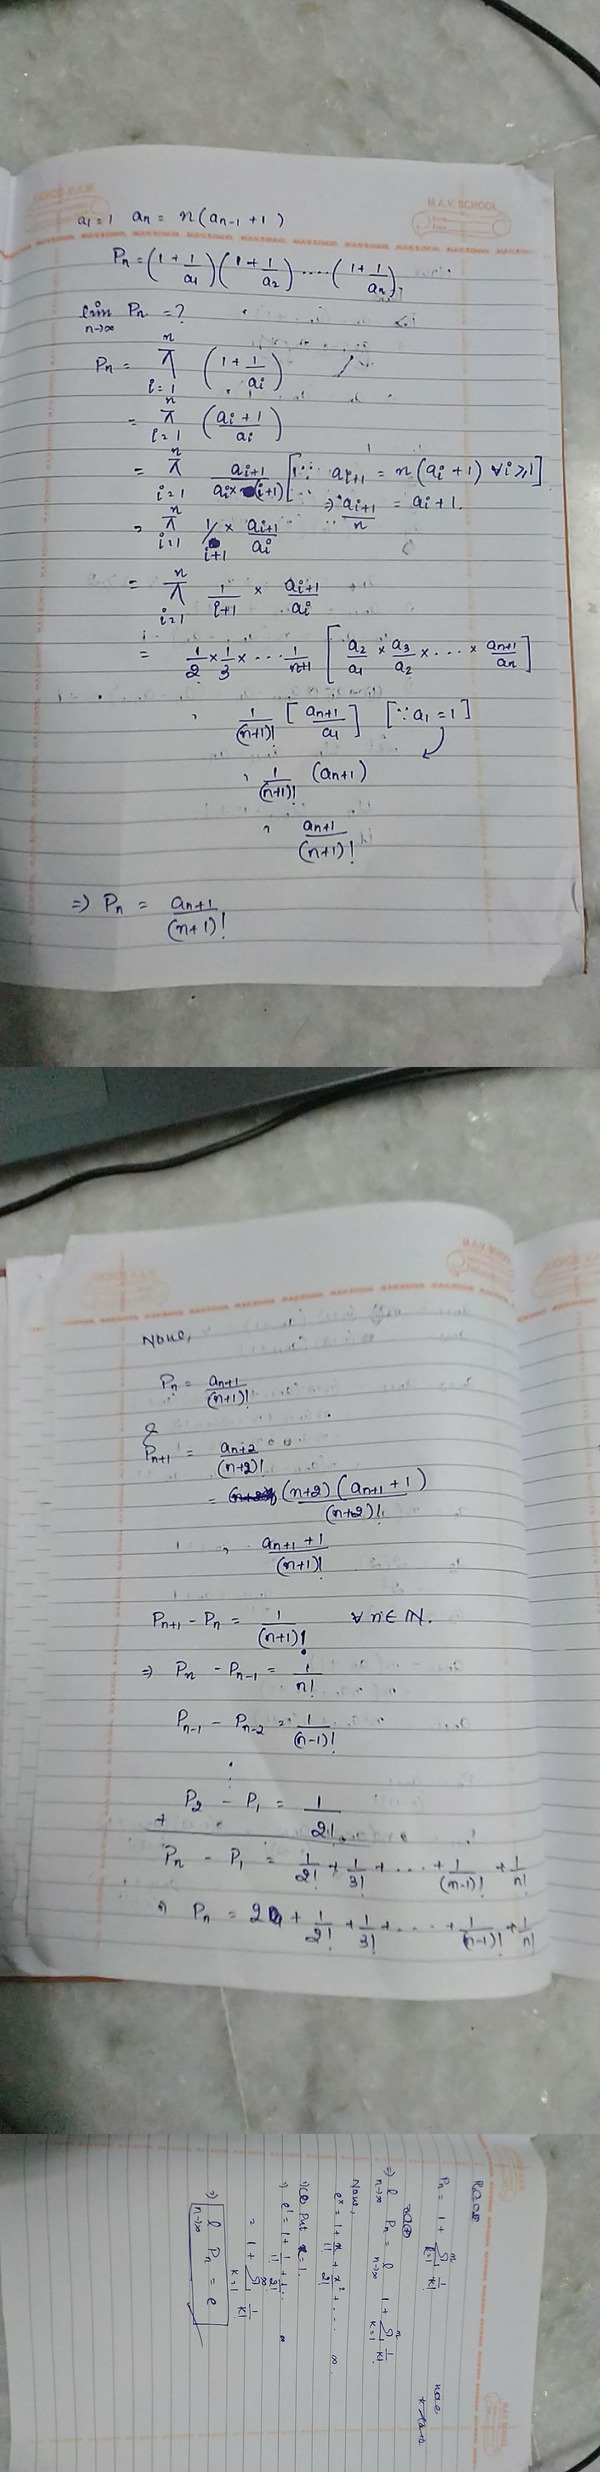 M.A.V. SCHOOL
a₁ = 1   aₙ = n(aₙ₋₁ + 1)
Pₙ = (1 + 1/a₁)(1 + 1/a₂) ..... (1 + 1/aₙ),
lim n→∞ Pₙ = ?
Pₙ = π i=1 n (1 + 1/aᵢ)
= π i=1 n ((aᵢ + 1)/aᵢ)
= π i=1 n aᵢ₊₁/(aᵢ × (i+1)) [∵ aᵢ₊₁ = n(aᵢ + 1) ∀ i ≥ 1]
⇒ aᵢ₊₁/n = aᵢ + 1.
= π i=1 n 1/(i+1) × aᵢ₊₁/aᵢ
= π i=1 n 1/(i+1) × aᵢ₊₁/aᵢ
= 1/2 × 1/3 × ... 1/(n+1) [a₂/a₁ × a₃/a₂ × ... × aₙ₊₁/aₙ]
= 1/(n+1)! [aₙ₊₁/a₁] [∵ a₁ = 1]
= 1/(n+1)! (aₙ₊₁)
= aₙ₊₁/(n+1)!
⇒ Pₙ = aₙ₊₁/(n+1)!
Now,
Pₙ = aₙ₊₁/(n+1)!
&
Pₙ₊₁ = aₙ₊₂/(n+2)!
= (n+2)(aₙ₊₁ + 1)/(n+2)!
= (aₙ₊₁ + 1)/(n+1)!
Pₙ₊₁ - Pₙ = 1/(n+1)!   ∀ n ∈ N.
⇒ Pₙ - Pₙ₋₁ = 1/n!
Pₙ₋₁ - Pₙ₋₂ = 1/(n-1)!
⋮
P₂ - P₁ = 1/2!
+
Pₙ - P₁ = 1/2! + 1/3! + .... + 1/(n-1)! + 1/n!
⇒ Pₙ = 2 + 1/2! + 1/3! + .... + 1/(n-1)! + 1/n!
Pₙ = 1 + Σ k=1 n 1/k!
now,
⇒ l n→∞ Pₙ = l n→∞ 1 + Σ k=1 n 1/k!
Now,
eˣ = 1 + x/1! + x²/2! + .... ∞.
Put x = 1.
⇒ e¹ = 1 + 1/1! + 1/2! + ... ∞
= 1 + Σ k=1 ∞ 1/k!
⇒ l n→∞ Pₙ = e